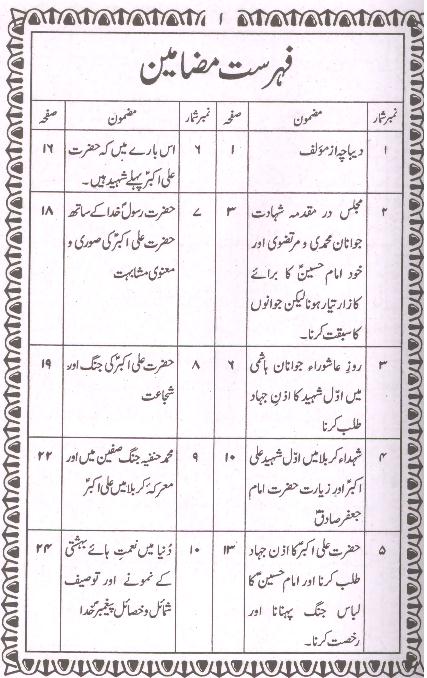 ۱
فہرست مضامین
نمبر شمار مضمون صفحہ نمبر شمار مضمون صفحہ
۱ دیباچہ از مؤلف ۱
۲ مجلس در مقدمہ شہادت ۳
جوانان محمدی و مرتضوی اور
خود امام حسینؑ کا برائے
کارزار تیار ہونا لیکن جوانوں
کا سبقت کرنا۔
۳ روزِ عاشوراء جوانان ہاشمی ۶
میں اوّل شہید کا اذنِ جہاد
طلب کرنا
۴ شہداء کربلا میں اوّل شہید علی ۱۰
اکبرؑ اور زیارت حضرت امام
جعفر صادقؑ
۵ حضرت علی اکبرؑ کا اذن جہاد ۱۳
طلب کرنا اور امام حسینؑ کا
لباس جنگ پہنانا اور
رخصت کرنا۔
۶ اس بارے میں کہ حضرت ۱۶
علی اکبرؑ پہلے شہید ہیں۔
۷ حضرت رسولؐ خدا کے ساتھ ۱۸
حضرت علی اکبرؑ کی صوری و
معنوی مشابہت
۸ حضرت علی اکبرؑ کی جنگ اور ۱۹
شجاعت
۹ محمد حنفیہ جنگ صفین میں اور ۲۲
معرکۂ کربلا میں علی اکبرؑ
۱۰ دُنیا میں نعمت ہائے بہشتی ۲۴
کے نمونے اور توصیف
شمائل و خصائل پیغمبرؐ خدا